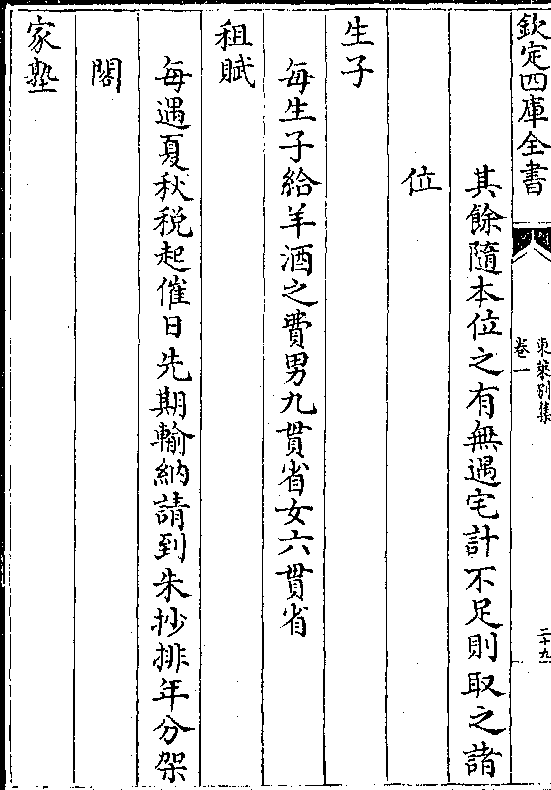 欽定四庫全書
東萊別集
卷一
二十九
其餘隨本位之有無遇宅計不足則取之諸
位
生子
每生子給羊酒之費男九貫省女六貫省
租賦
每遇夏秋税起催日先期輸納請到朱抄排年分架
閣
家塾